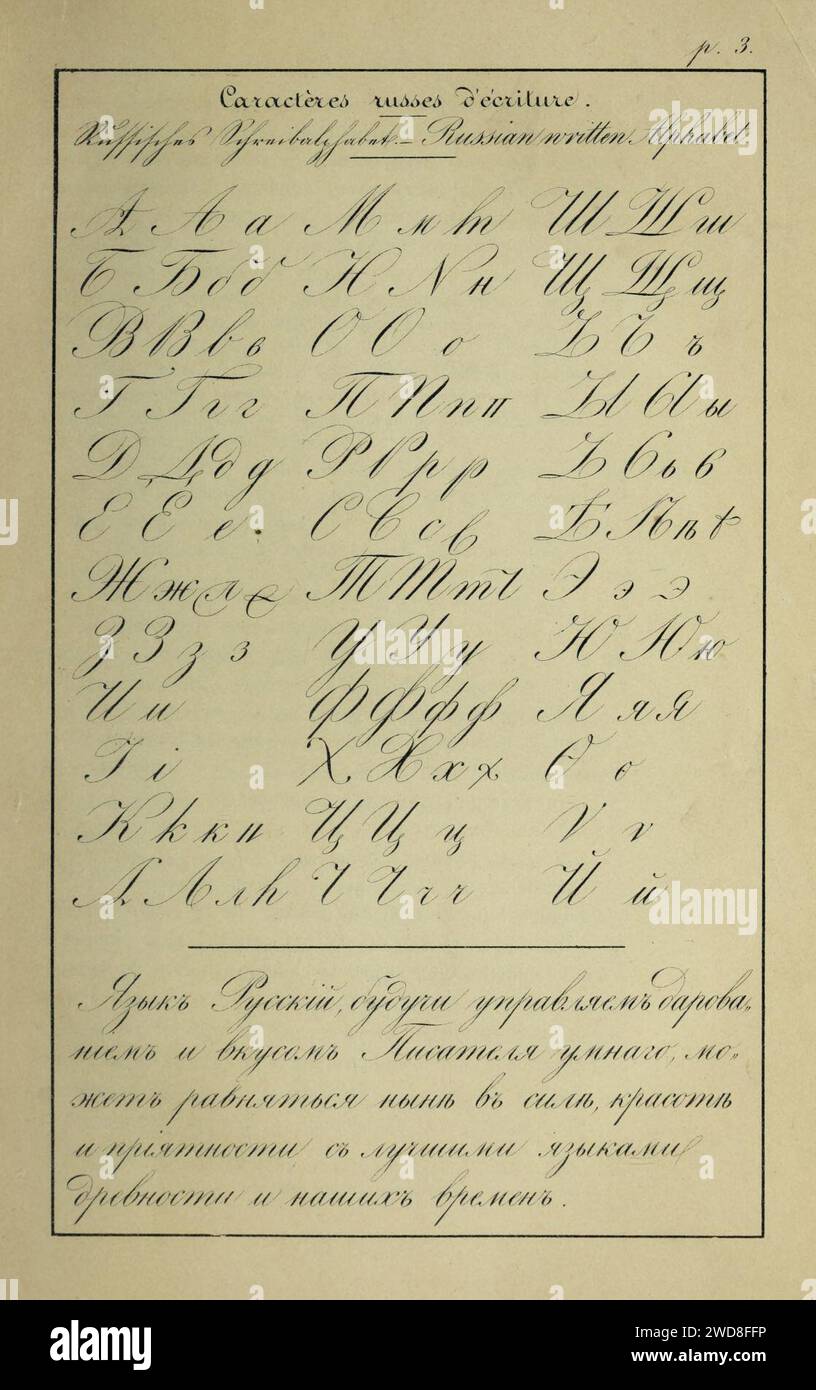 p. 3.
Caractères russes d'écriture.
Russisches Schreibalphabet. – Russian written Alphabet.
А А а М м т Ш Ш ш
Б Б б б Н N н Щ Щ щ
В В в в О О о Ъ Ъ ъ
Г Г г г П П п п Ы Ы ы
Д Д д д Р Р р р Ь Ь ь ь
Е Е е С С с с Ѣ Ѣ ѣ ѣ
Ж ж ж ж Т Т т т Э э э
З З з з У У у Ю Ю ю
И и Ф Ф ф ф Я я я
І і Х Х х х Ѳ ѳ
К k к к Ц Ц ц Ѵ ѵ
Л Л л л Ч Ч ч ч Й й
Языкъ Русскій, будучи управляемъ дарова„
ніемъ и вкусомъ Писателя умнаго, мо„
жетъ равняться нынѣ въ силѣ, красотѣ
и пріятности съ лучшими языками
древности и нашихъ временъ.
alamy
Image ID: 2WD8FFP
www.alamy.com